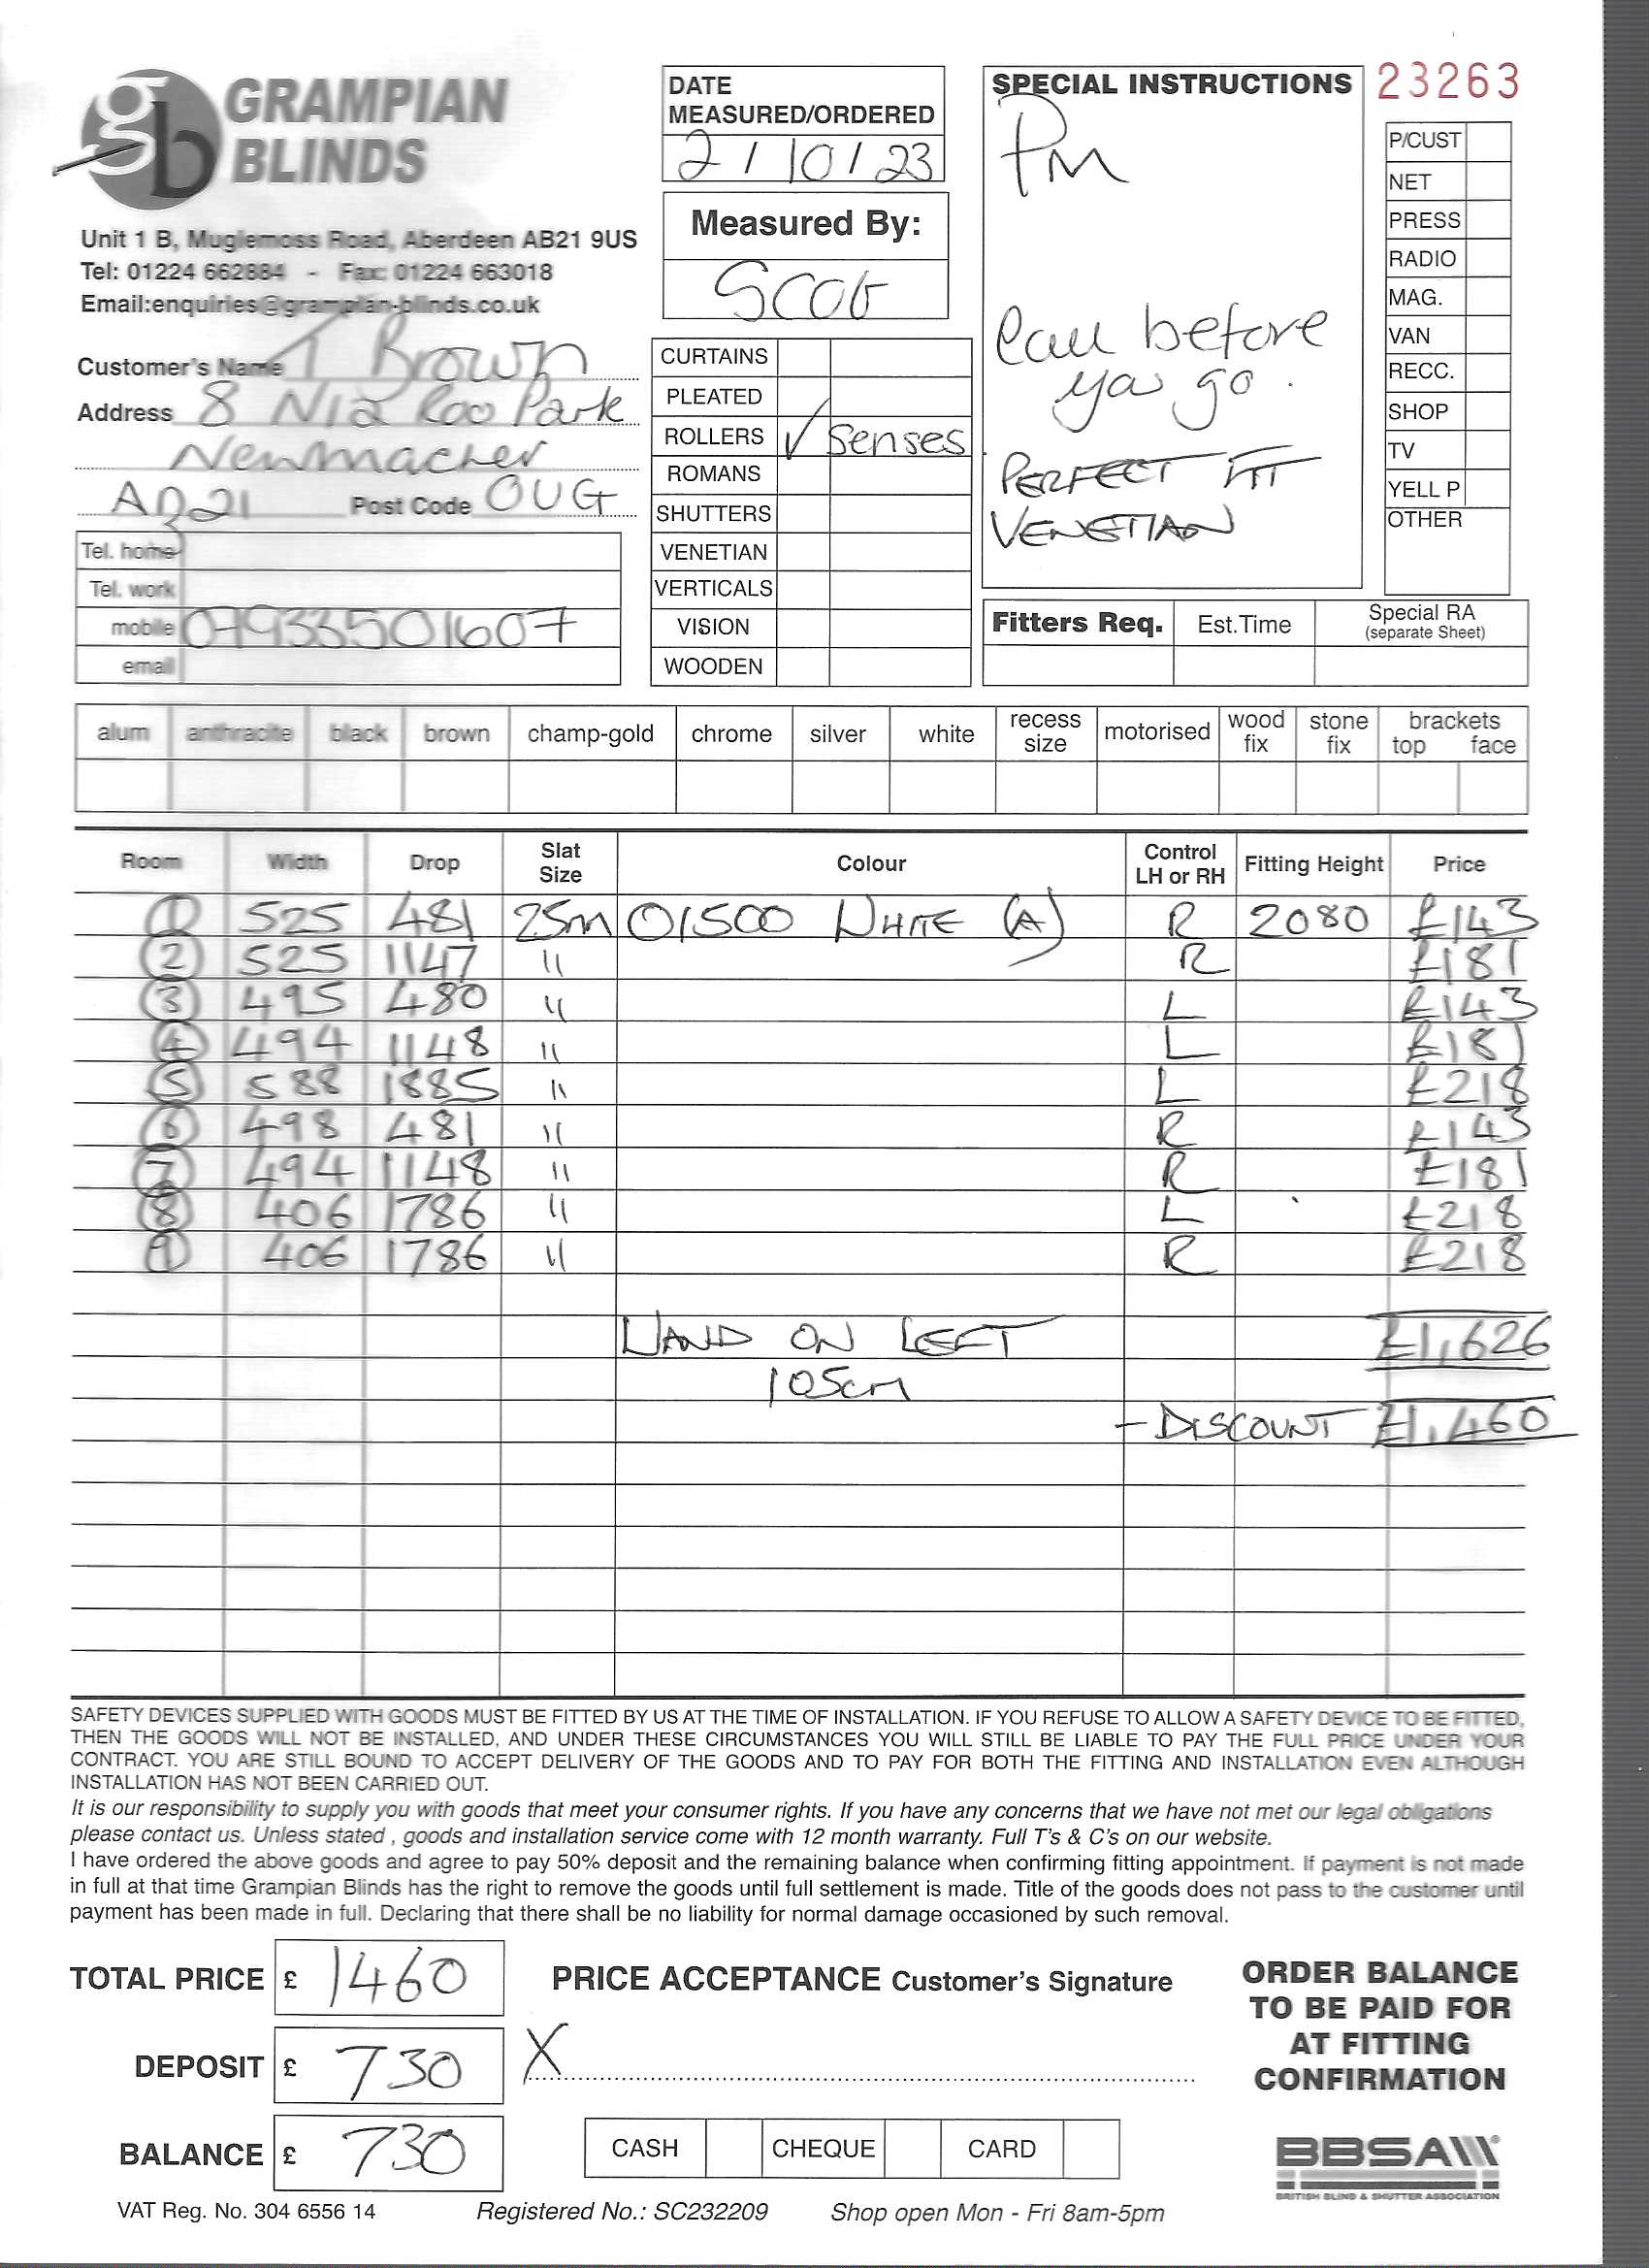 GRAMPIAN BLINDS
Unit 1 B, Muglemoss Road, Aberdeen AB21 9US
Tel: 01224 662884 - Fax: 01224 663018
Email:enquiries@grampian-blinds.co.uk
DATE MEASURED/ORDERED
2/10/23
Measured By:
SPECIAL INSTRUCTIONS
23263
Pm
Call before
ya go.
PERFECT FIT
VENETIAN
P/CUST
NET
PRESS
RADIO
MAG.
VAN
RECC.
SHOP
TV
YELL P
OTHER
Customer's Name T Brown
Address 8 Park
Newmacher
AB21 Post Code 0UG
Tel. home
Tel. work
mobile 07933501607
email
CURTAINS
PLEATED
ROLLERS ✓ senses
ROMANS
SHUTTERS
VENETIAN
VERTICALS
VISION
WOODEN
Fitters Req. Est.Time Special RA (separate Sheet)
alum anthracite black brown champ-gold chrome silver white recess size motorised wood fix stone fix brackets top face
Room Width Drop Slat Size Colour Control LH or RH Fitting Height Price
1 525 481 25m 01500 WHITE (A) R 2080 £143
2 525 1147 " R £181
3 495 480 " L £143
4 494 1148 " L £181
5 588 1885 " L £218
6 498 481 " R £143
7 494 1148 " R £181
8 406 1786 " L £218
9 406 1786 " R £218
WAND ON LEFT £1,626
105cm
- DISCOUNT £1,460
SAFETY DEVICES SUPPLIED WITH GOODS MUST BE FITTED BY US AT THE TIME OF INSTALLATION. IF YOU REFUSE TO ALLOW A SAFETY DEVICE TO BE FITTED,
THEN THE GOODS WILL NOT BE INSTALLED, AND UNDER THESE CIRCUMSTANCES YOU WILL STILL BE LIABLE TO PAY THE FULL PRICE UNDER YOUR
CONTRACT. YOU ARE STILL BOUND TO ACCEPT DELIVERY OF THE GOODS AND TO PAY FOR BOTH THE FITTING AND INSTALLATION EVEN ALTHOUGH
INSTALLATION HAS NOT BEEN CARRIED OUT.
It is our responsibility to supply you with goods that meet your consumer rights. If you have any concerns that we have not met our legal obligations
please contact us. Unless stated , goods and installation service come with 12 month warranty. Full T's & C's on our website.
I have ordered the above goods and agree to pay 50% deposit and the remaining balance when confirming fitting appointment. If payment is not made
in full at that time Grampian Blinds has the right to remove the goods until full settlement is made. Title of the goods does not pass to the customer until
payment has been made in full. Declaring that there shall be no liability for normal damage occasioned by such removal.
TOTAL PRICE £ 1460
DEPOSIT £ 730
BALANCE £ 730
PRICE ACCEPTANCE Customer's Signature
X
CASH CHEQUE CARD
ORDER BALANCE
TO BE PAID FOR
AT FITTING
CONFIRMATION
BBSA
BRITISH BLIND & SHUTTER ASSOCIATION
VAT Reg. No. 304 6556 14 Registered No.: SC232209 Shop open Mon - Fri 8am-5pm